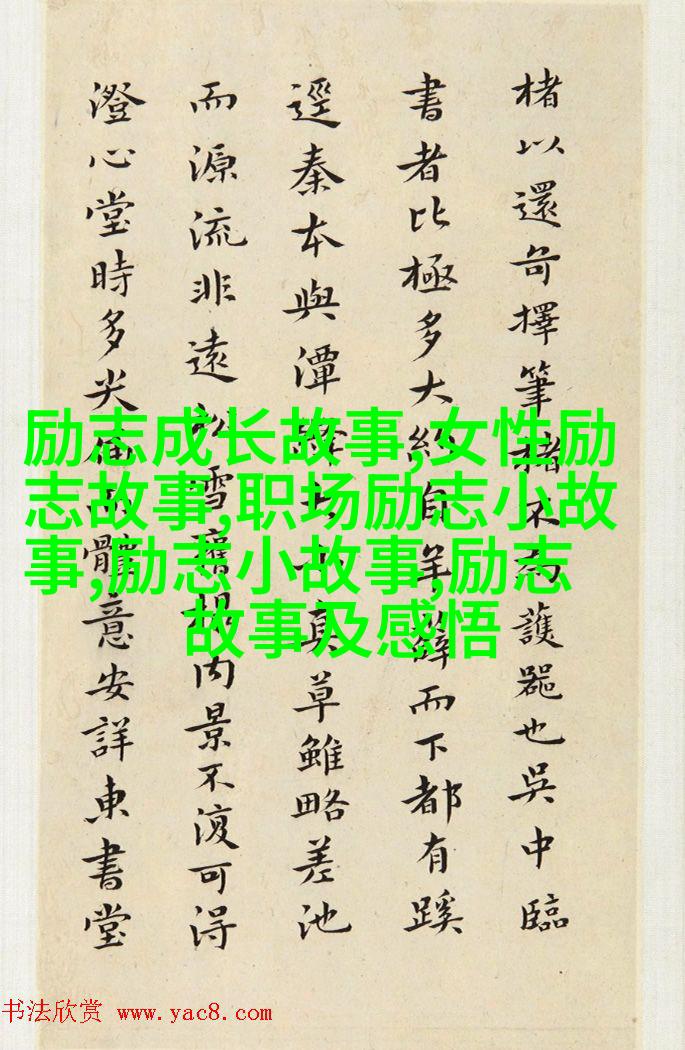 楮以還奇擇筆楮不護也吳中臨
書者比極多大約自羊薛而下都有蹊
逕秦本與潭真草雖略差池
而源流非遠雪內景不復可得
澄心堂時多尖意安詳東書堂
励志成长故事,女性励
志故事,职场励志小故
事,励志小故事,励志
故事及感悟
书法欣赏 www.yac8.com